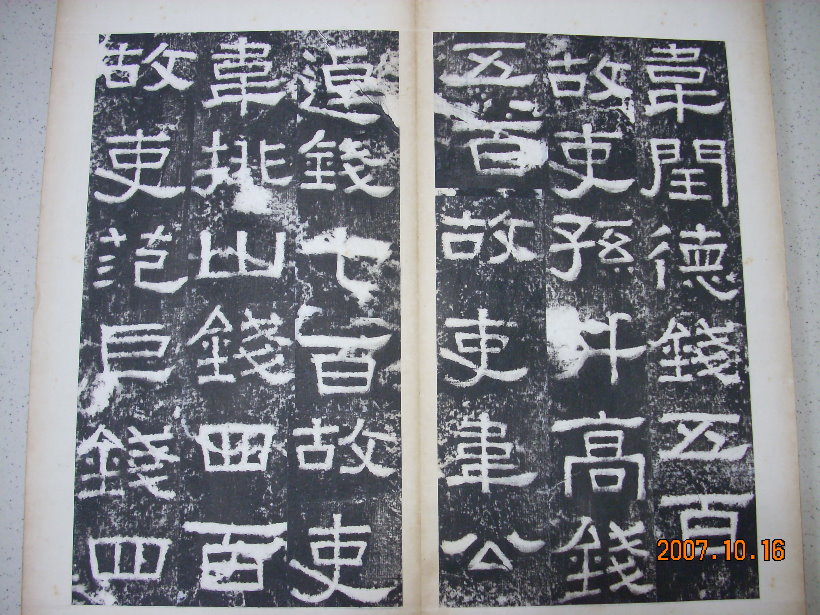 韋閏德錢五百
故吏孫升高錢
五百故吏韋公
逴錢七百故吏
韋排山錢四百
故吏范巨錢四
2007.10.16